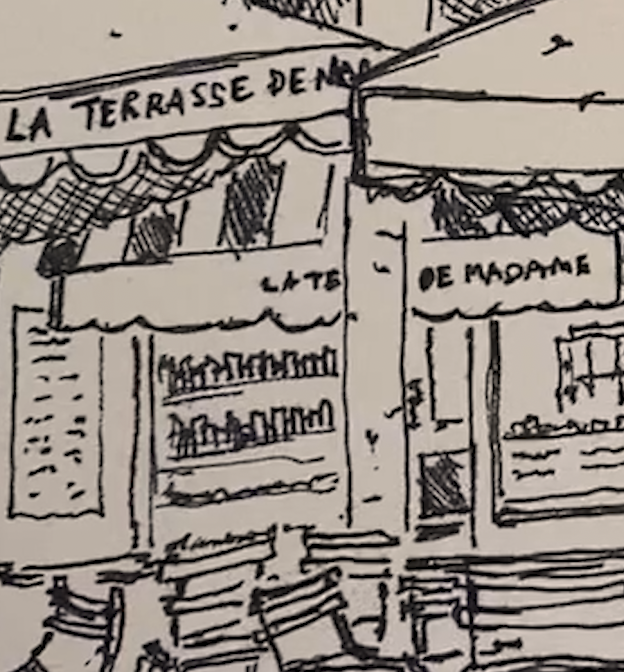 LA TERRASSE DE
LA TE
DE MADAME